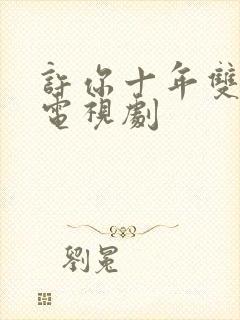 許你十年雙
電視劇
劉冕